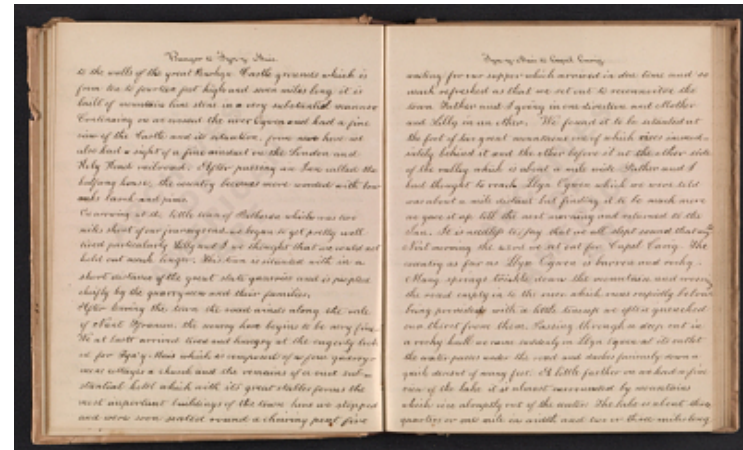 Bangor to Tyn-y-Mais.
to the walls of the great Penrhyn Castle grounds which is
from ten to fourteen feet high and seven miles long it is
built of mountain lime stone in a very substantial manner
Continuing on we crossed the river Ogwen and had a fine
view of the Castle and its situation, from here we
also had a sight of a fine viaduct on the London and
Holy Head railroad. After passing an Inn called the
halfway house, the country became more wooded with low
oaks larch and pines.
On arriving at the little town of Bethesda which was two
miles short of our journeys end we began to get pretty well
tired particularly Lilly and I we thought that we could not
hold out much longer. This town is situated with in a
short distance of the great slate quarries and is peopled
chiefly by the quarrymen and their families.
After leaving the town the road winds along the vale
of Nant Ffrancon, the scenery here begins to be very fine
We at last arrived tired and hungry at the eagerly look
ed for Tyn-y-Mais which is composed of a few quarry-
mens cottages a church and the remains of a once sub-
stantial hotel which with its great stables forms the
most important buildings of the town here we stopped
and were soon seated round a cheering peat fire
Tyn-y-Mais to Capel Curig.
waiting for our supper which arrived in due time and so
much refreshed us that we set out to reconnoitre the
town Father and I going in one direction and Mother
and Lilly in an other. We found it to be situated at
the foot of two great mountains one of which rises immed-
iately behind it and the other before it at the other side
of the valley which is about a mile wide Father and I
had thought to reach Llyn Ogwen which we were told
was about a mile distant but finding it to be much more
we gave it up till the next morning and returned to the
Inn. It is needless to say that we all slept sound that
Next morning the set out for Capel Curig. The
country as far as Llyn Ogwen is barren and rocky.
Many springs trickle down the mountain and cross
the road empty in to the river which runs rapidly below
being provided with a little teacup we often quenched
our thirst from them. Passing through a deep cut in
a rocky hill we came suddenly on Llyn Ogwen at its outlet
the water passes under the road and dashes foamily down a
quick descent of many feet. A little farther on we had a fine
view of the lake it is almost surrounded by mountains
which rise abruptly out of the water. The lake is about three
quarters or one mile in width and two or three miles long